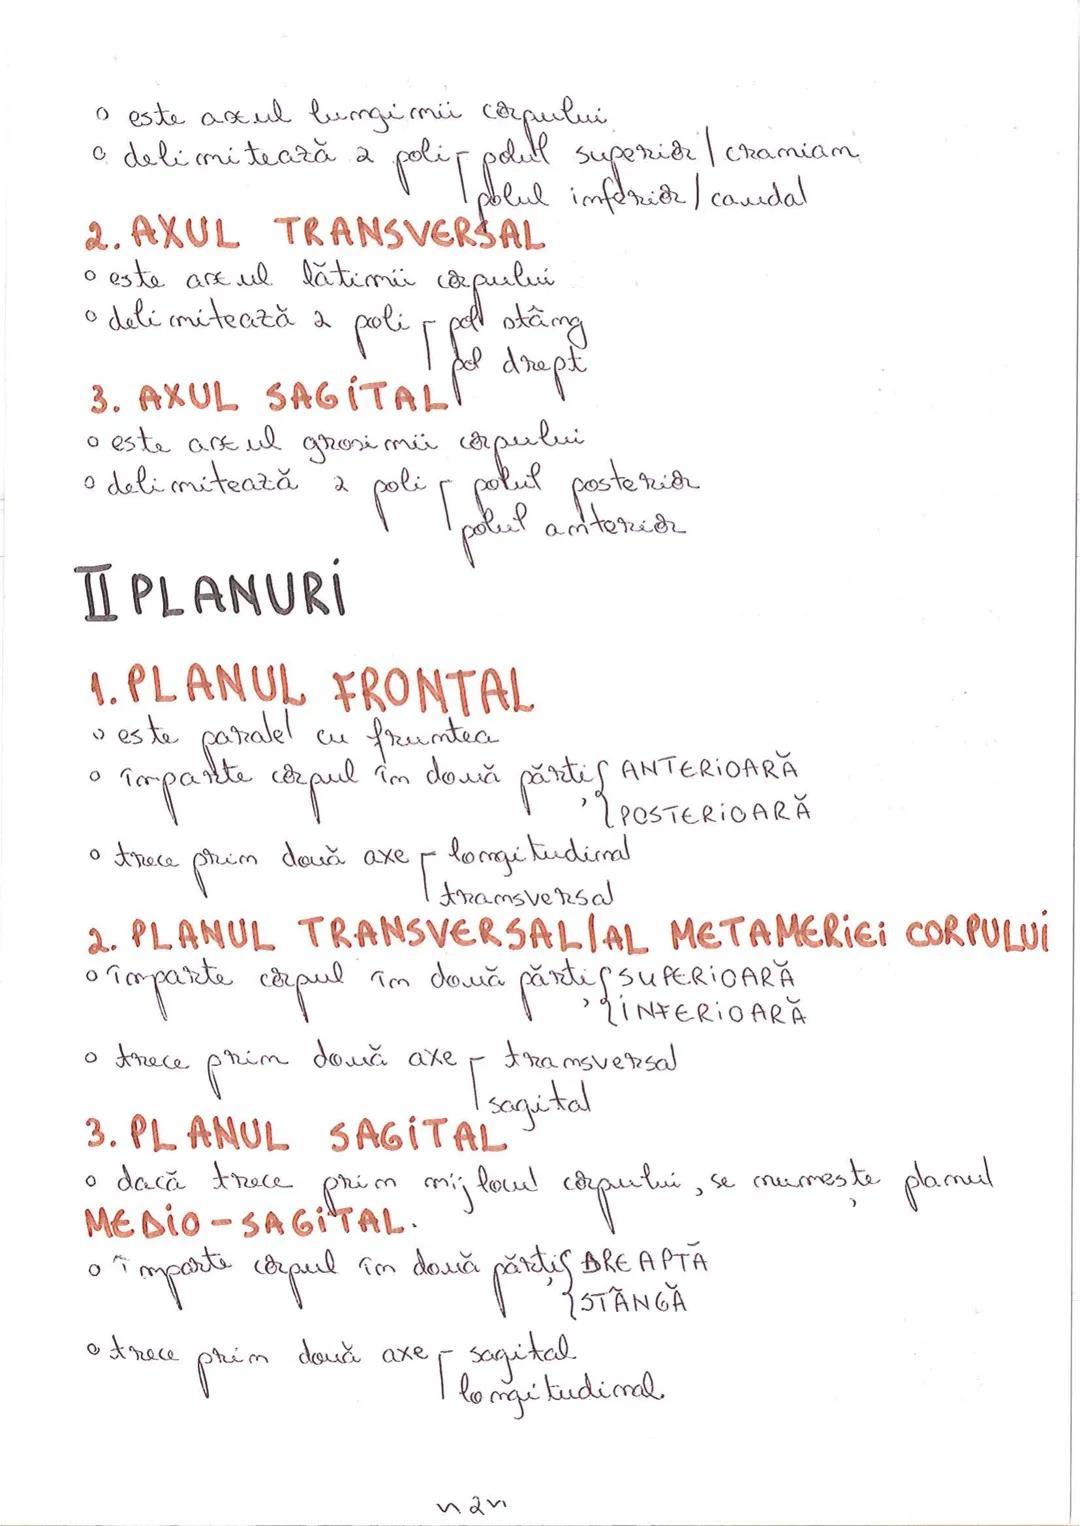 o este axul lungimii corpului
o delimitează 2 poli polul superior/cranian
polul inferior/caudal
2. AXUL TRANSVERSAL
o este axul lătimii corpului
o delimitează 2 poli pol stâng
pol drept
3. AXUL SAGITAL
o este axul grosimii corpului
o delimitează 2 poli polul posterior
polul anterior
II PLANURI
1. PLANUL FRONTAL
o este paralel cu fruntea
o împarte corpul în două părți { ANTERIOARĂ
POSTERIOARĂ
o trece prin două axe longitudinal
transversal
2. PLANUL TRANSVERSAL/AL METAMERIEI CORPULUI
o împarte corpul în două părți { SUPERIOARĂ
INFERIOARĂ
o trece prin două axe transversal
sagital
3. PLANUL SAGITAL
o dacă trece prin mijlocul corpului, se numește planul
MEDIO-SAGITAL.
o împarte corpul în două părți { DREAPTĂ
STÂNGĂ
o trece prin două axe sagital
longitudinal
~2~